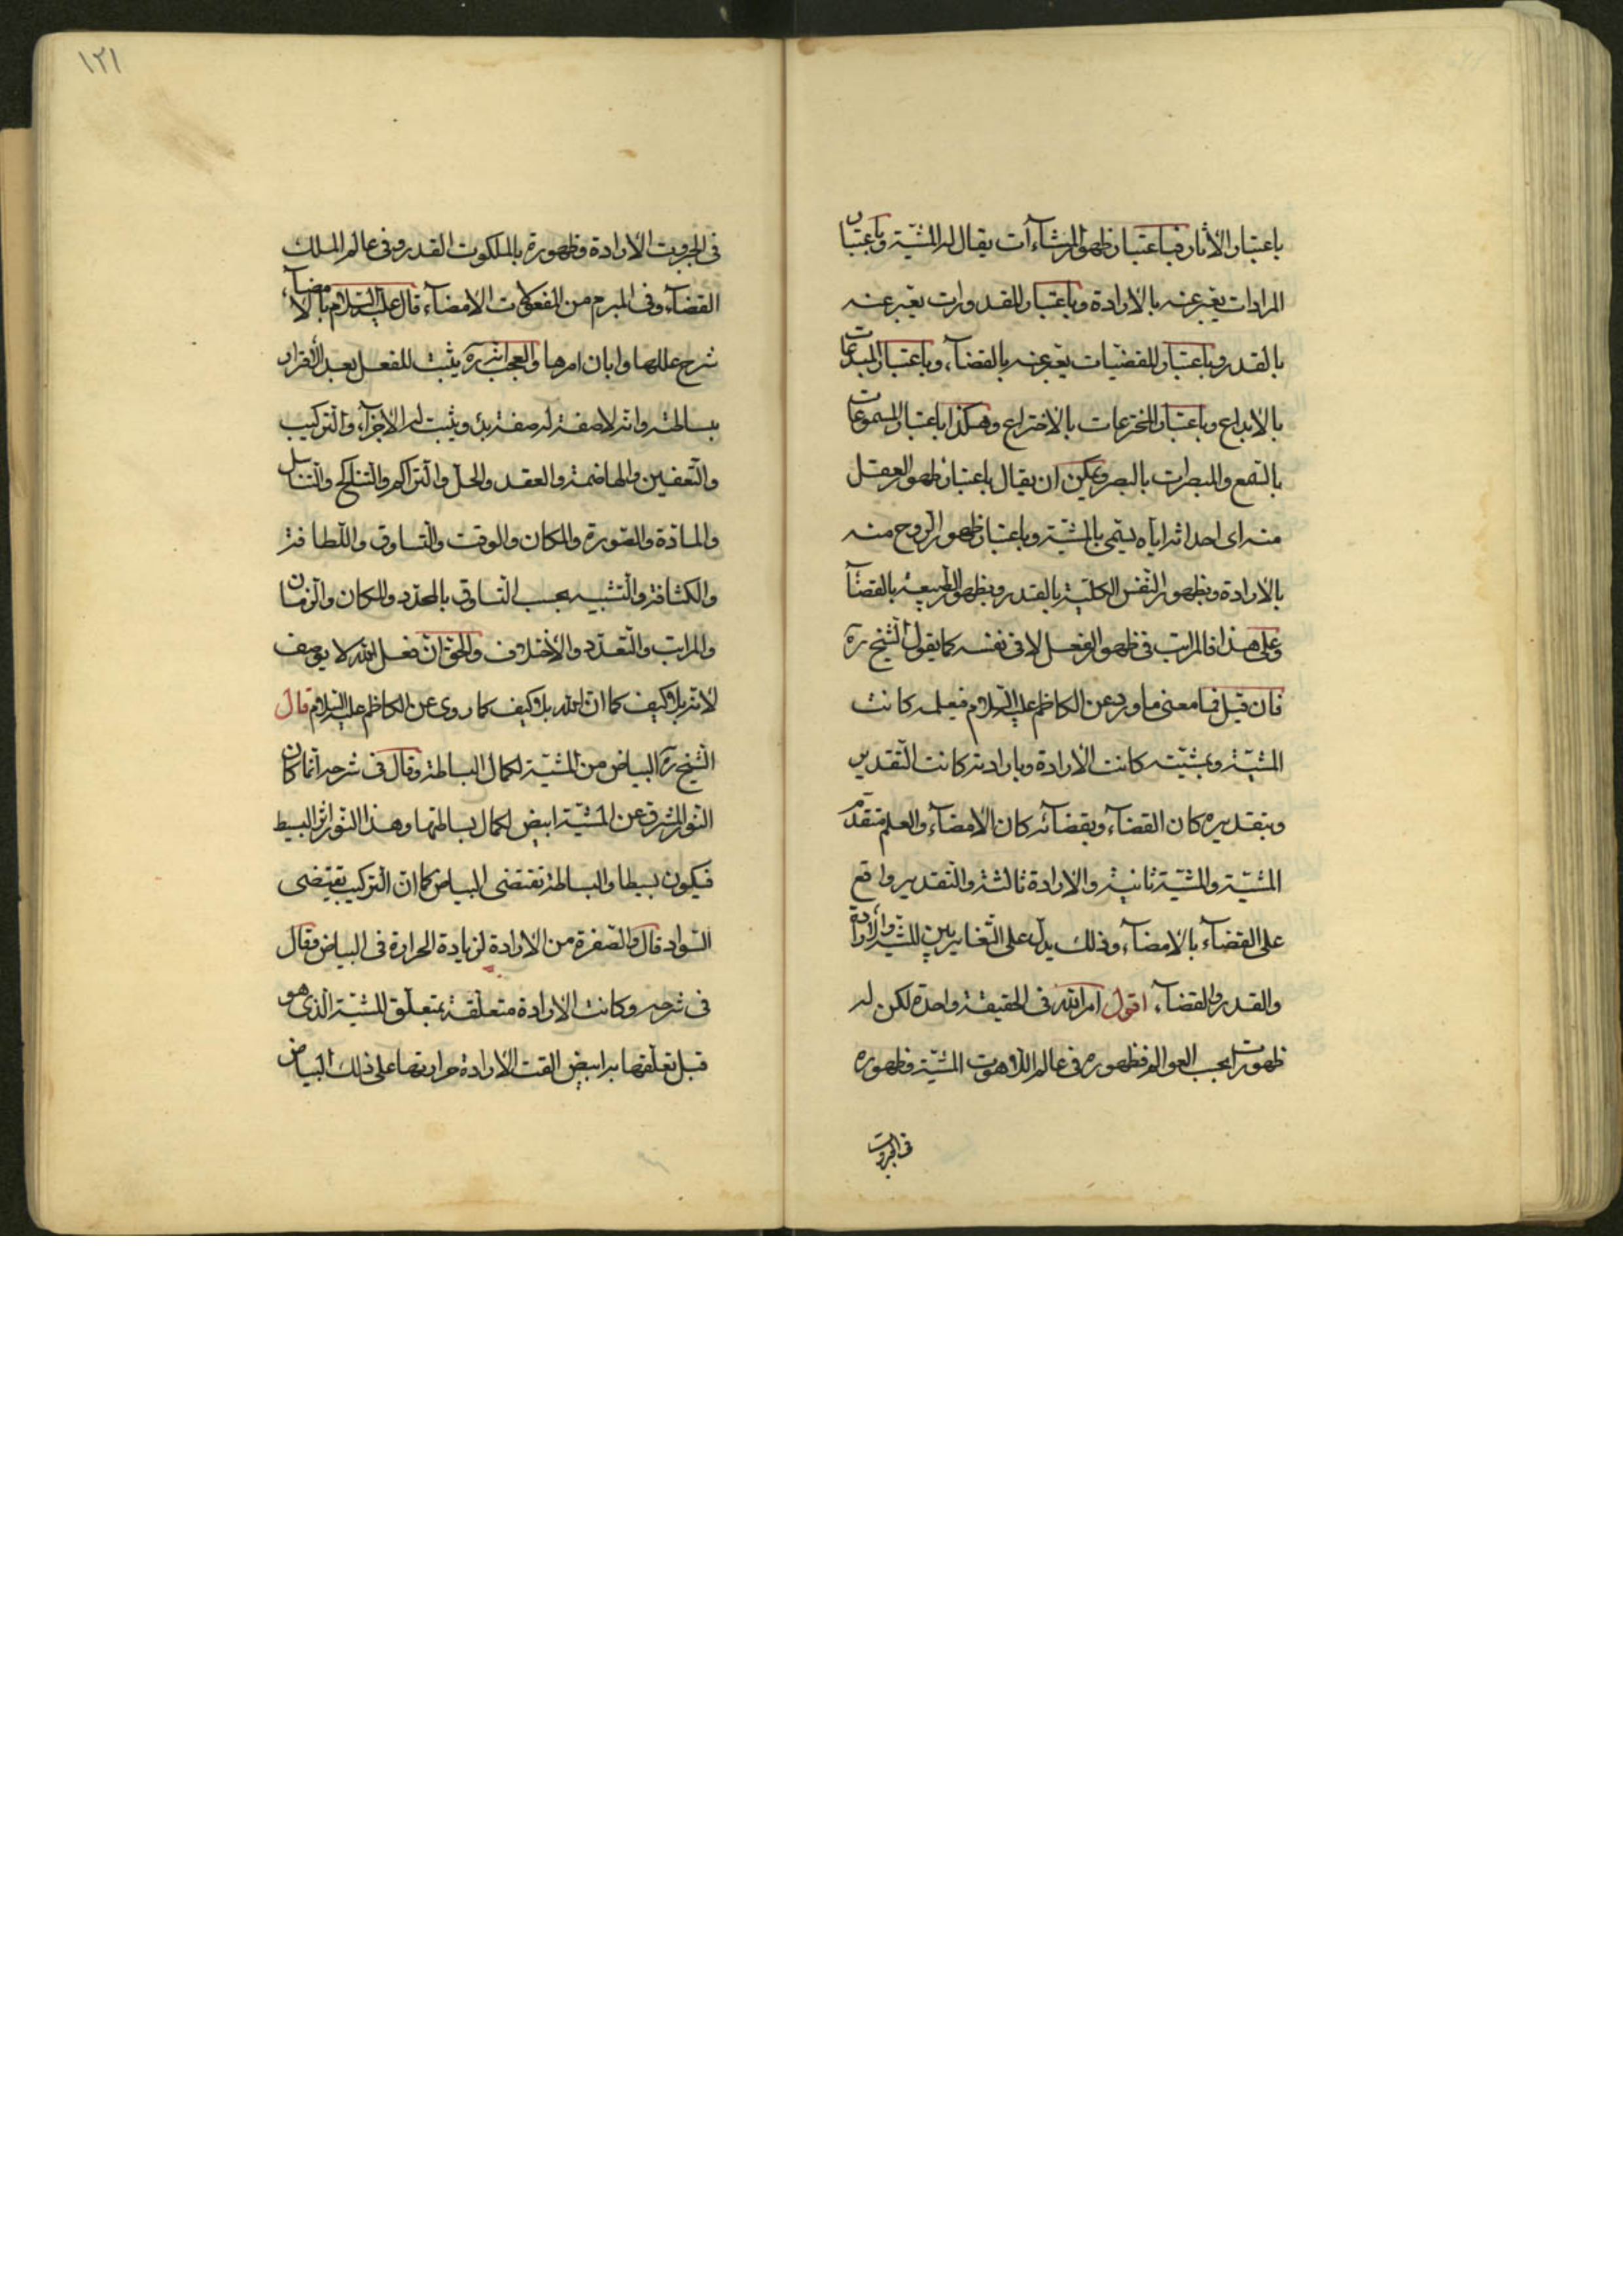 باعتبار الاثار فباعتبار ظهور المشاءآت يقال له المشيّة وباعتبار
المرادات يعبّر عنه بالارادة وباعتبار المقدورات يعبّر عنه
بالقدر وباعتبار المقضيّات يعبّر عنه بالقضآء وباعتبار المبدعات
بالابداع وباعتبار المخترعات بالاختراع وهكذا باعتبار المسموعات
بالسّمع والمبصرات بالبصر ويمكن ان يقال باعتبار ظهور العقل
منه اى احداثه ايّاه يسمّى بالمشيّة وباعتبار ظهور الرّوح منه
بالارادة وبظهور النّفس الكليّة بالقدر وبظهور الطّبيعة بالقضآء
وعلى هذا فالمراتب فى ظهور الفعل لا فى نفسه كما يقول الشّيخ ره
فان قيل فما معنى ما ورد عن الكاظم عليه السّلام فبعلمه كانت
المشيّة وبمشيّته كانت الارادة وبارادته كانت التّقدير
وبتقديره كان القضآء وبقضآئه كان الامضآء والعلم متقدّم
المشيّة والمشيّة ثانية والارادة ثالثة والتّقدير واقع
على القضآء بالامضآء وذلك يدلّ على التّغاير بين المشيّة والارادة
والقدر والقضآء اقول امر الله فى الحقيقة واحدة لكن له
ظهورات بحسب العوالم فظهوره فى عالم اللاهوت المشيّة وظهوره
فى الجبروت
١٢١
فى الجبروت الارادة وظهوره بالملكوت القدر وفى عالم الملك
القضآء وفى المبرم من المفعولات الامضآء قال عليه السّلام بالامضآء
شرح عللها وابان امرها والعجب انّه ره يثبت للفعل بعد الاقرار
ببساطته وانّه لا صفة له صفة بدن ويثبت له الاجزآء والتّركيب
والتّعفين والهاضمة والعقد والحلّ والتّراكم والتّناكح والتّناسل
والمادّة والصّورة والمكان والوقت والتّساوق واللّطافة
والكثافة والتّشبيه بحسب التّساوق بالمحدّد والمكان والزّمان
والمراتب والتّعدّد والاختلاف والحقّ انّ فعل الله لا يوصف
لانّه بلا كيف كما انّ الله بلا كيف كما روى عن الكاظم عليه السّلام قال
الشّيخ ره البياض من المشيّة لكمال البساطة وقال فى شرحه انّما كان
النّور المشرق عن المشيّة ابيض لكمال بساطتها وهذا النّور اثر البسيط
فيكون بسيطا والبساطة تقتضى البياض كما انّ التّركيب يقتضى
السّواد قال والصّفرة من الارادة لزيادة الحرارة فى البياض وقال
فى شرحه وكانت الارادة متعلّقة بمتعلّق المشيّة الّذى هو
قبل تعلّقها به ابيض القت الارادة حرارتها على ذلك البياض